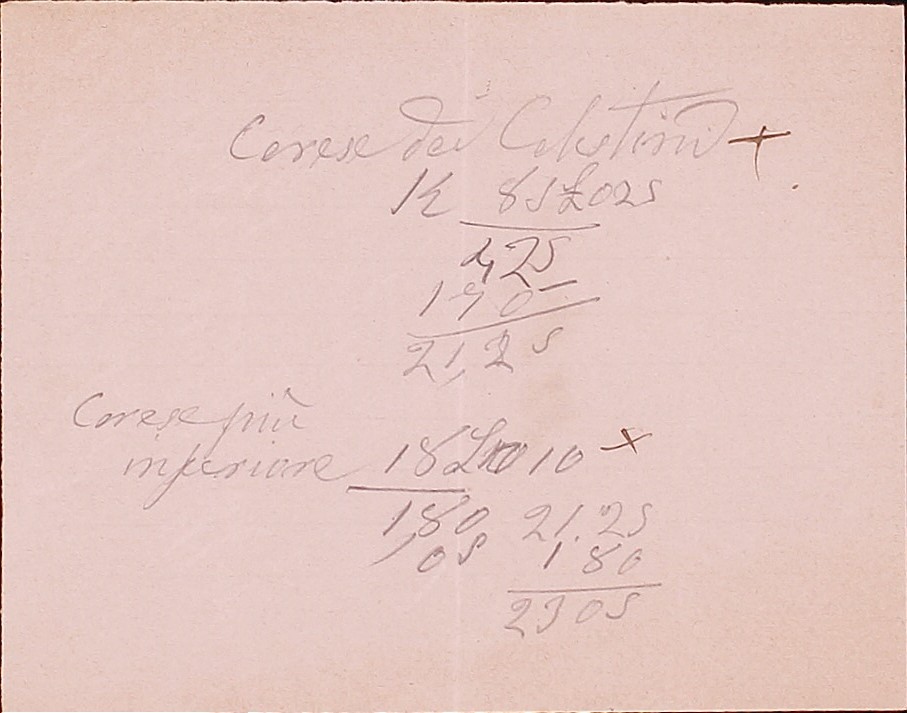 Corese dei Celestini +
K 85 £ 025
4,25
170-
21,25
Corese più
inferiore 18 £ 010 ×
180 21.25
,05 180
2305